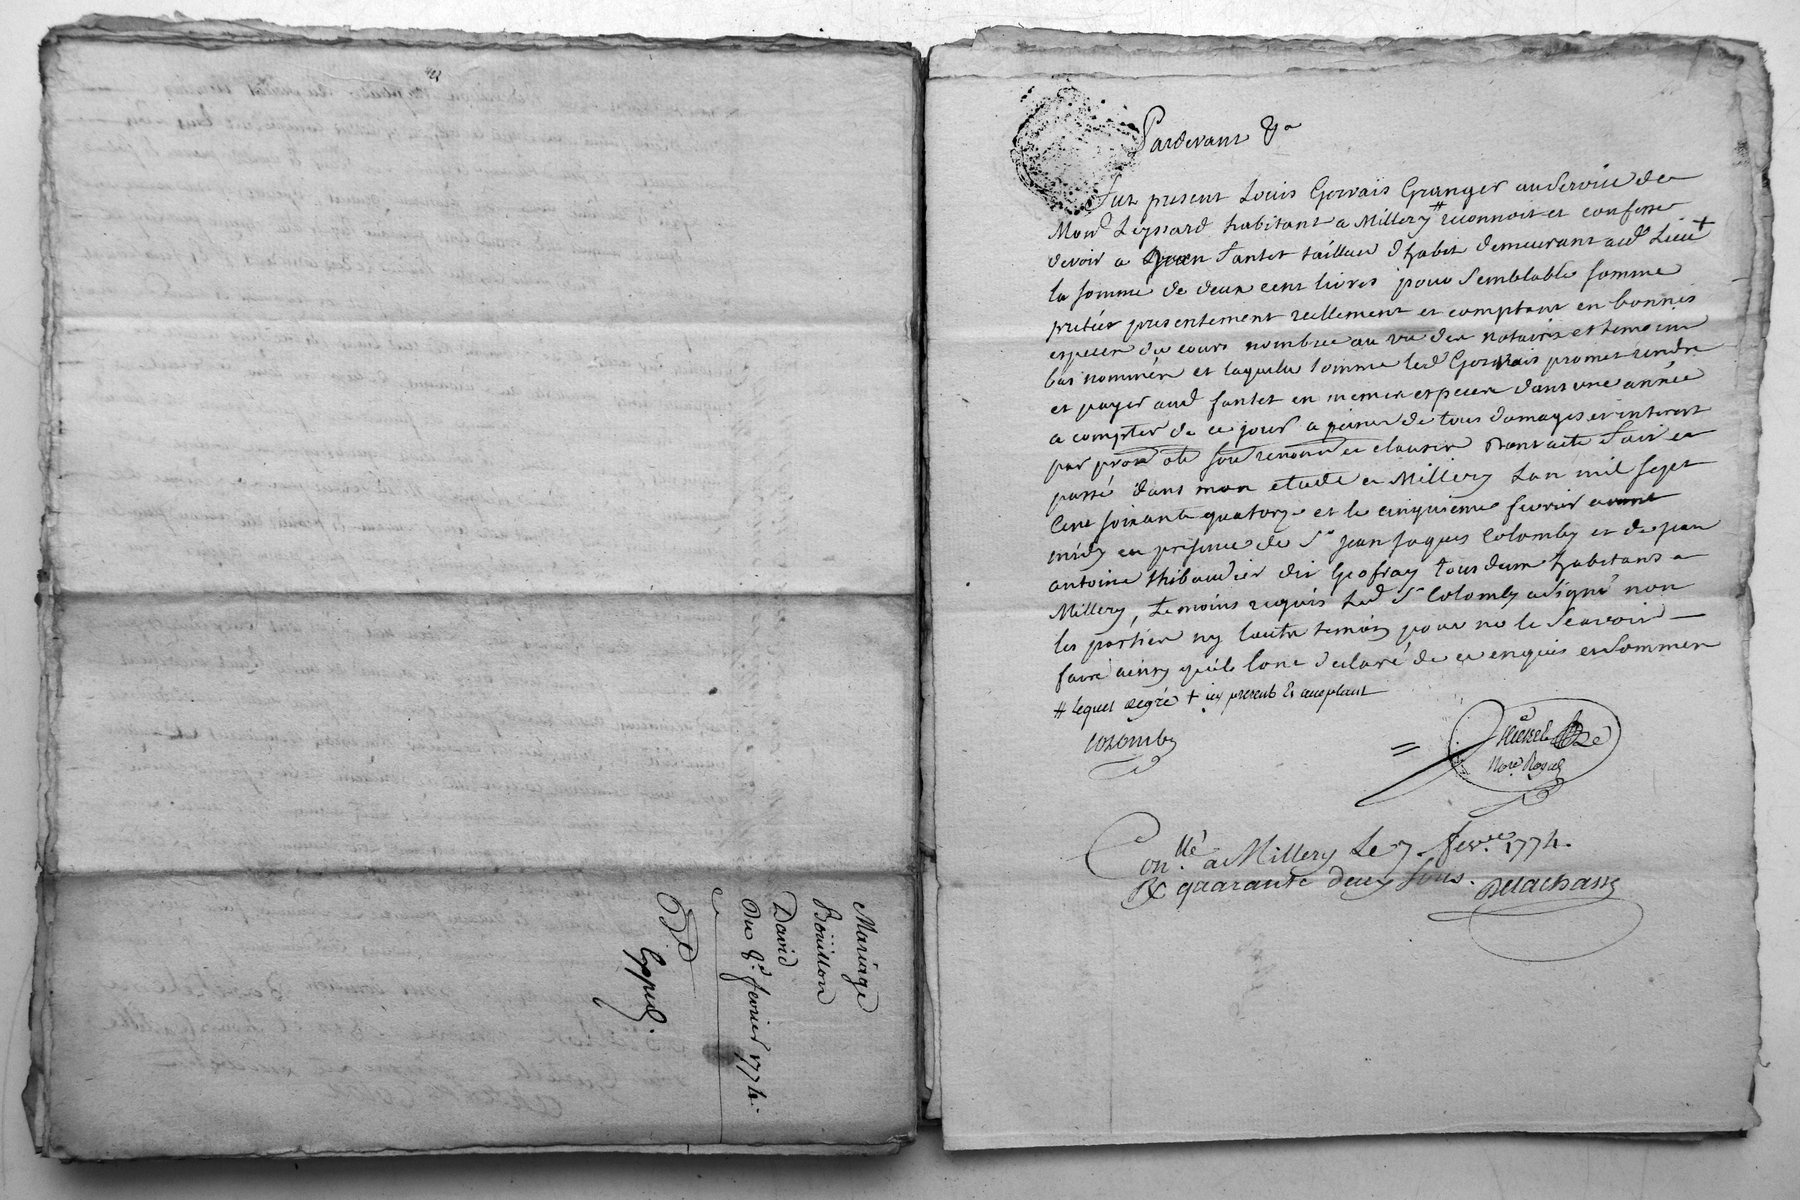 Mariage
Boüillon
David
Du 8e. fevrier 1774.
Exp
Pardevant &a
Fut present Louis Gervais Granger au Service de
Monr Leyssard habitant a Millery # reconnoit et confesse
devoir a Jean Santet tailleur d'habit demeurant aud. Lieu +
la somme de deux cent livres pour Semblable somme
pretée presentement reellement et comptant en bonnes
especes du cours nombrée au vu des notaire et temoins
bas nommés et laquelle somme led Gervais promet rendre
et payer aud santet en memes especes dans une année
a compter de ce jour a peine de tous domages et interest
par prom obl soum renon et clauses Dont acte Fait et
passé dans mon etude a Millery Lan mil sept
Cent soixante quatorze et le cinquieme fevrier avant
midy en presence de Sr Jean Jaques Colomby et de jean
antoine thibaudier dit Geofray tous deux habitans a
Millery, temoins requis Led Sr Colomby a Signé non
les parties ny lautre temoin pour ne le Scavoir
faire ainsy quils lont declaré de ce enquis et Sommés
# lequel degré + icy present Et acceptant
Colomby
Nore. Royal
Conllé a Millery Le 7. fevre. 1774.
R quarante deux sous. Delachasse